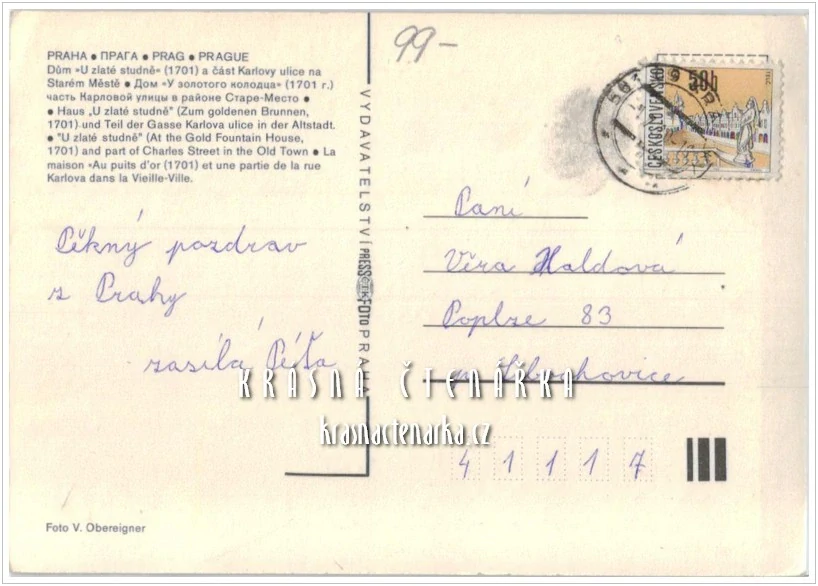 99-
PRAHA ● ПРАГА ● PRAG ● PRAGUE
Dům »U zlaté studně« (1701) a část Karlovy ulice na
Starém Městě ● Дом «У золотого колодца» (1701 г.)
часть Карловой улицы в районе Старе-Место ●
● Haus „U zlaté studně" (Zum goldenen Brunnen,
1701) und Teil der Gasse Karlova ulice in der Altstadt.
● "U zlaté studně" (At the Gold Fountain House,
1701) and part of Charles Street in the Old Town ● La
maison «Au puits d'or (1701) et une partie de la rue
Karlova dans la Vieille-Ville.
Pěkný pozdrav
z Prahy
zasílá Péťa
Foto V. Obereigner
VYDAVATELSTVÍ PRESSFOTO PRAHA
ČESKOSLOVENSKO
50h
Paní
Věra Haldová
Poplze 83
Libochovice
41117
KRÁSNÁ ČTENÁŘKA
krasnactenarka.cz